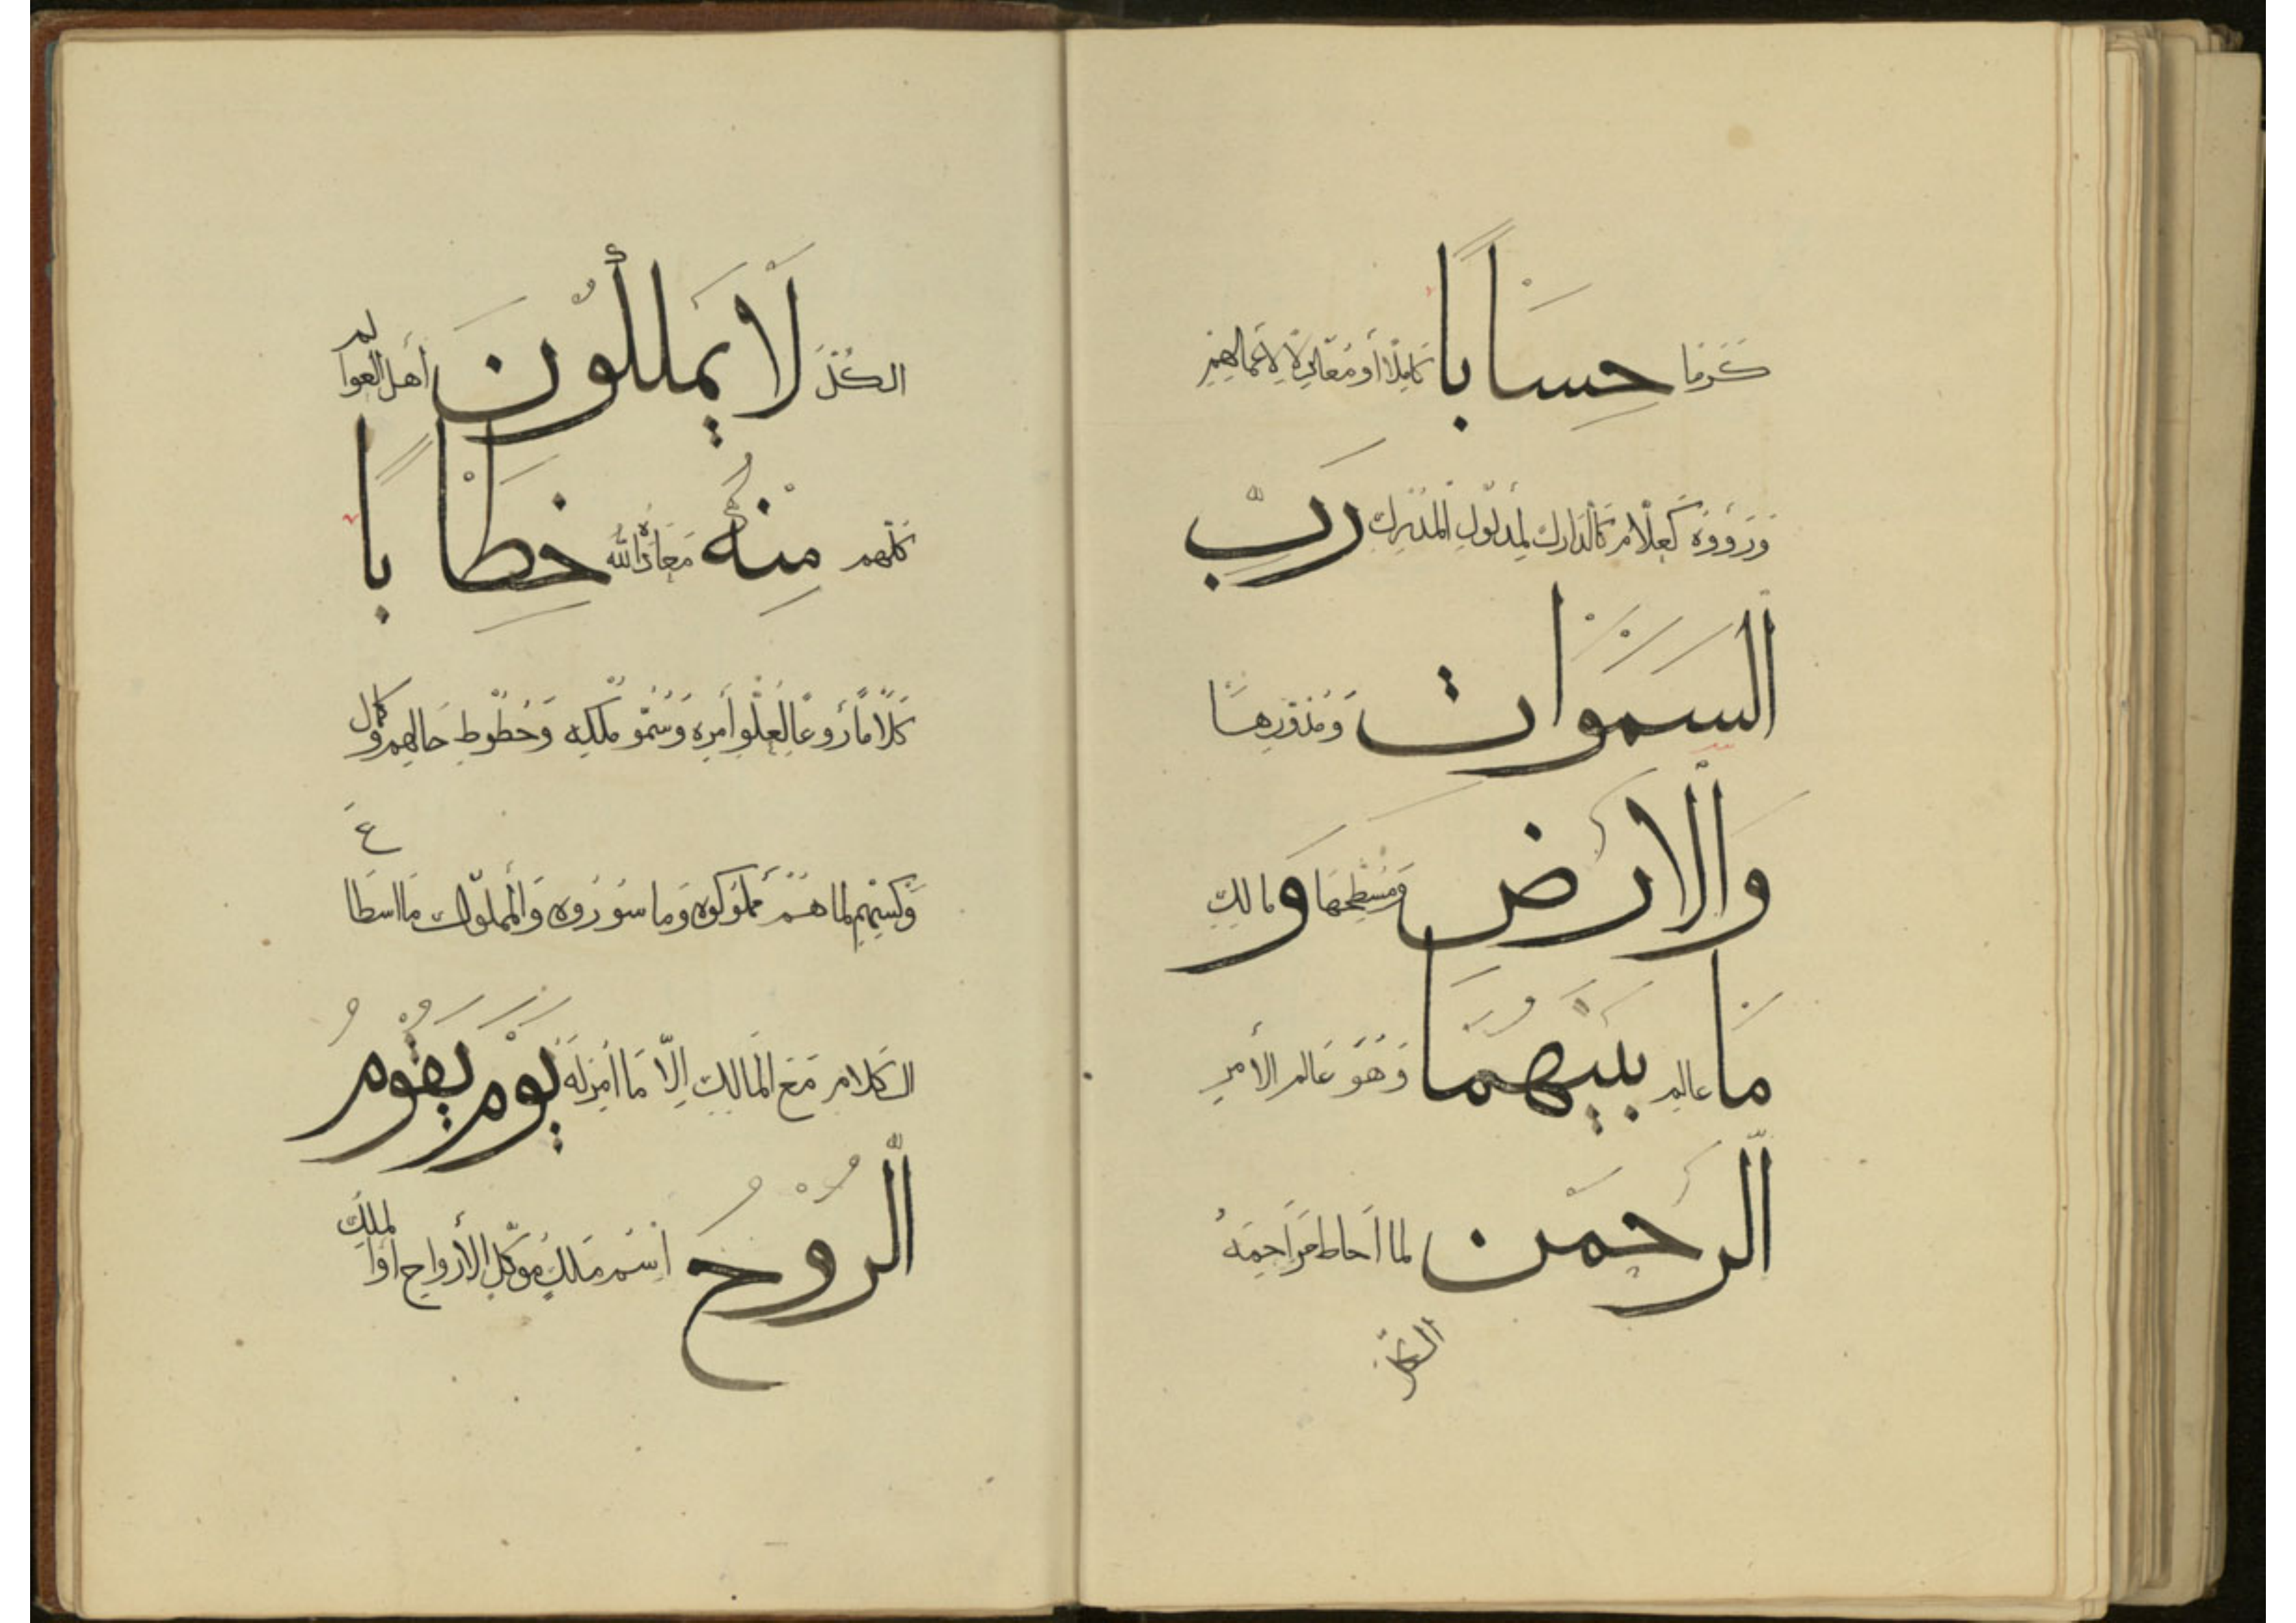 كَرَمًا حِسَابًا كَامِلًا أو مُعَادِلًا لِأعْمَالِهِمْ
وَرَوَوْهُ كَعلَّام كَالدَّارك لِمدلُولِ المُدْرِكِ رَبِّ
السَّمَوَات وَمُدَوِّرِهَا
وَالْاَرْضِ وَمُسَطِّحِهَا وَ مَالِكِ
مَا عالمِ بَيْنَهُمَا وَهُوَ عَالَم الأمرِ
الرَّحْمَنِ لما اَحاط مَرَاحِمُهُ
الكلّ
الكُلَّ لَا يَمْلِكُونَ أهل العوالم
كلهم مِنْهُ مَعَادُ الله خِطَابًا
كَلَامًا رَوْعًا لِعُلُوِّ أَمرِهِ وَسُمُوِّ مُلْكِهِ وَحُطُوطِ حَالِهِم وَكَمال
لما هُمْ مملوكوه وما سوروه وَالمملوك مَا اسطَاعَ
الكَلَام مَعَ المَالِك اِلَّا مَا اَمَرَ لَهُ يَوْمَ يَقُومُ
الرُّوحُ اسْم مَلَكٍ مُوَكَّلِ الأرواحِ اَو الملك